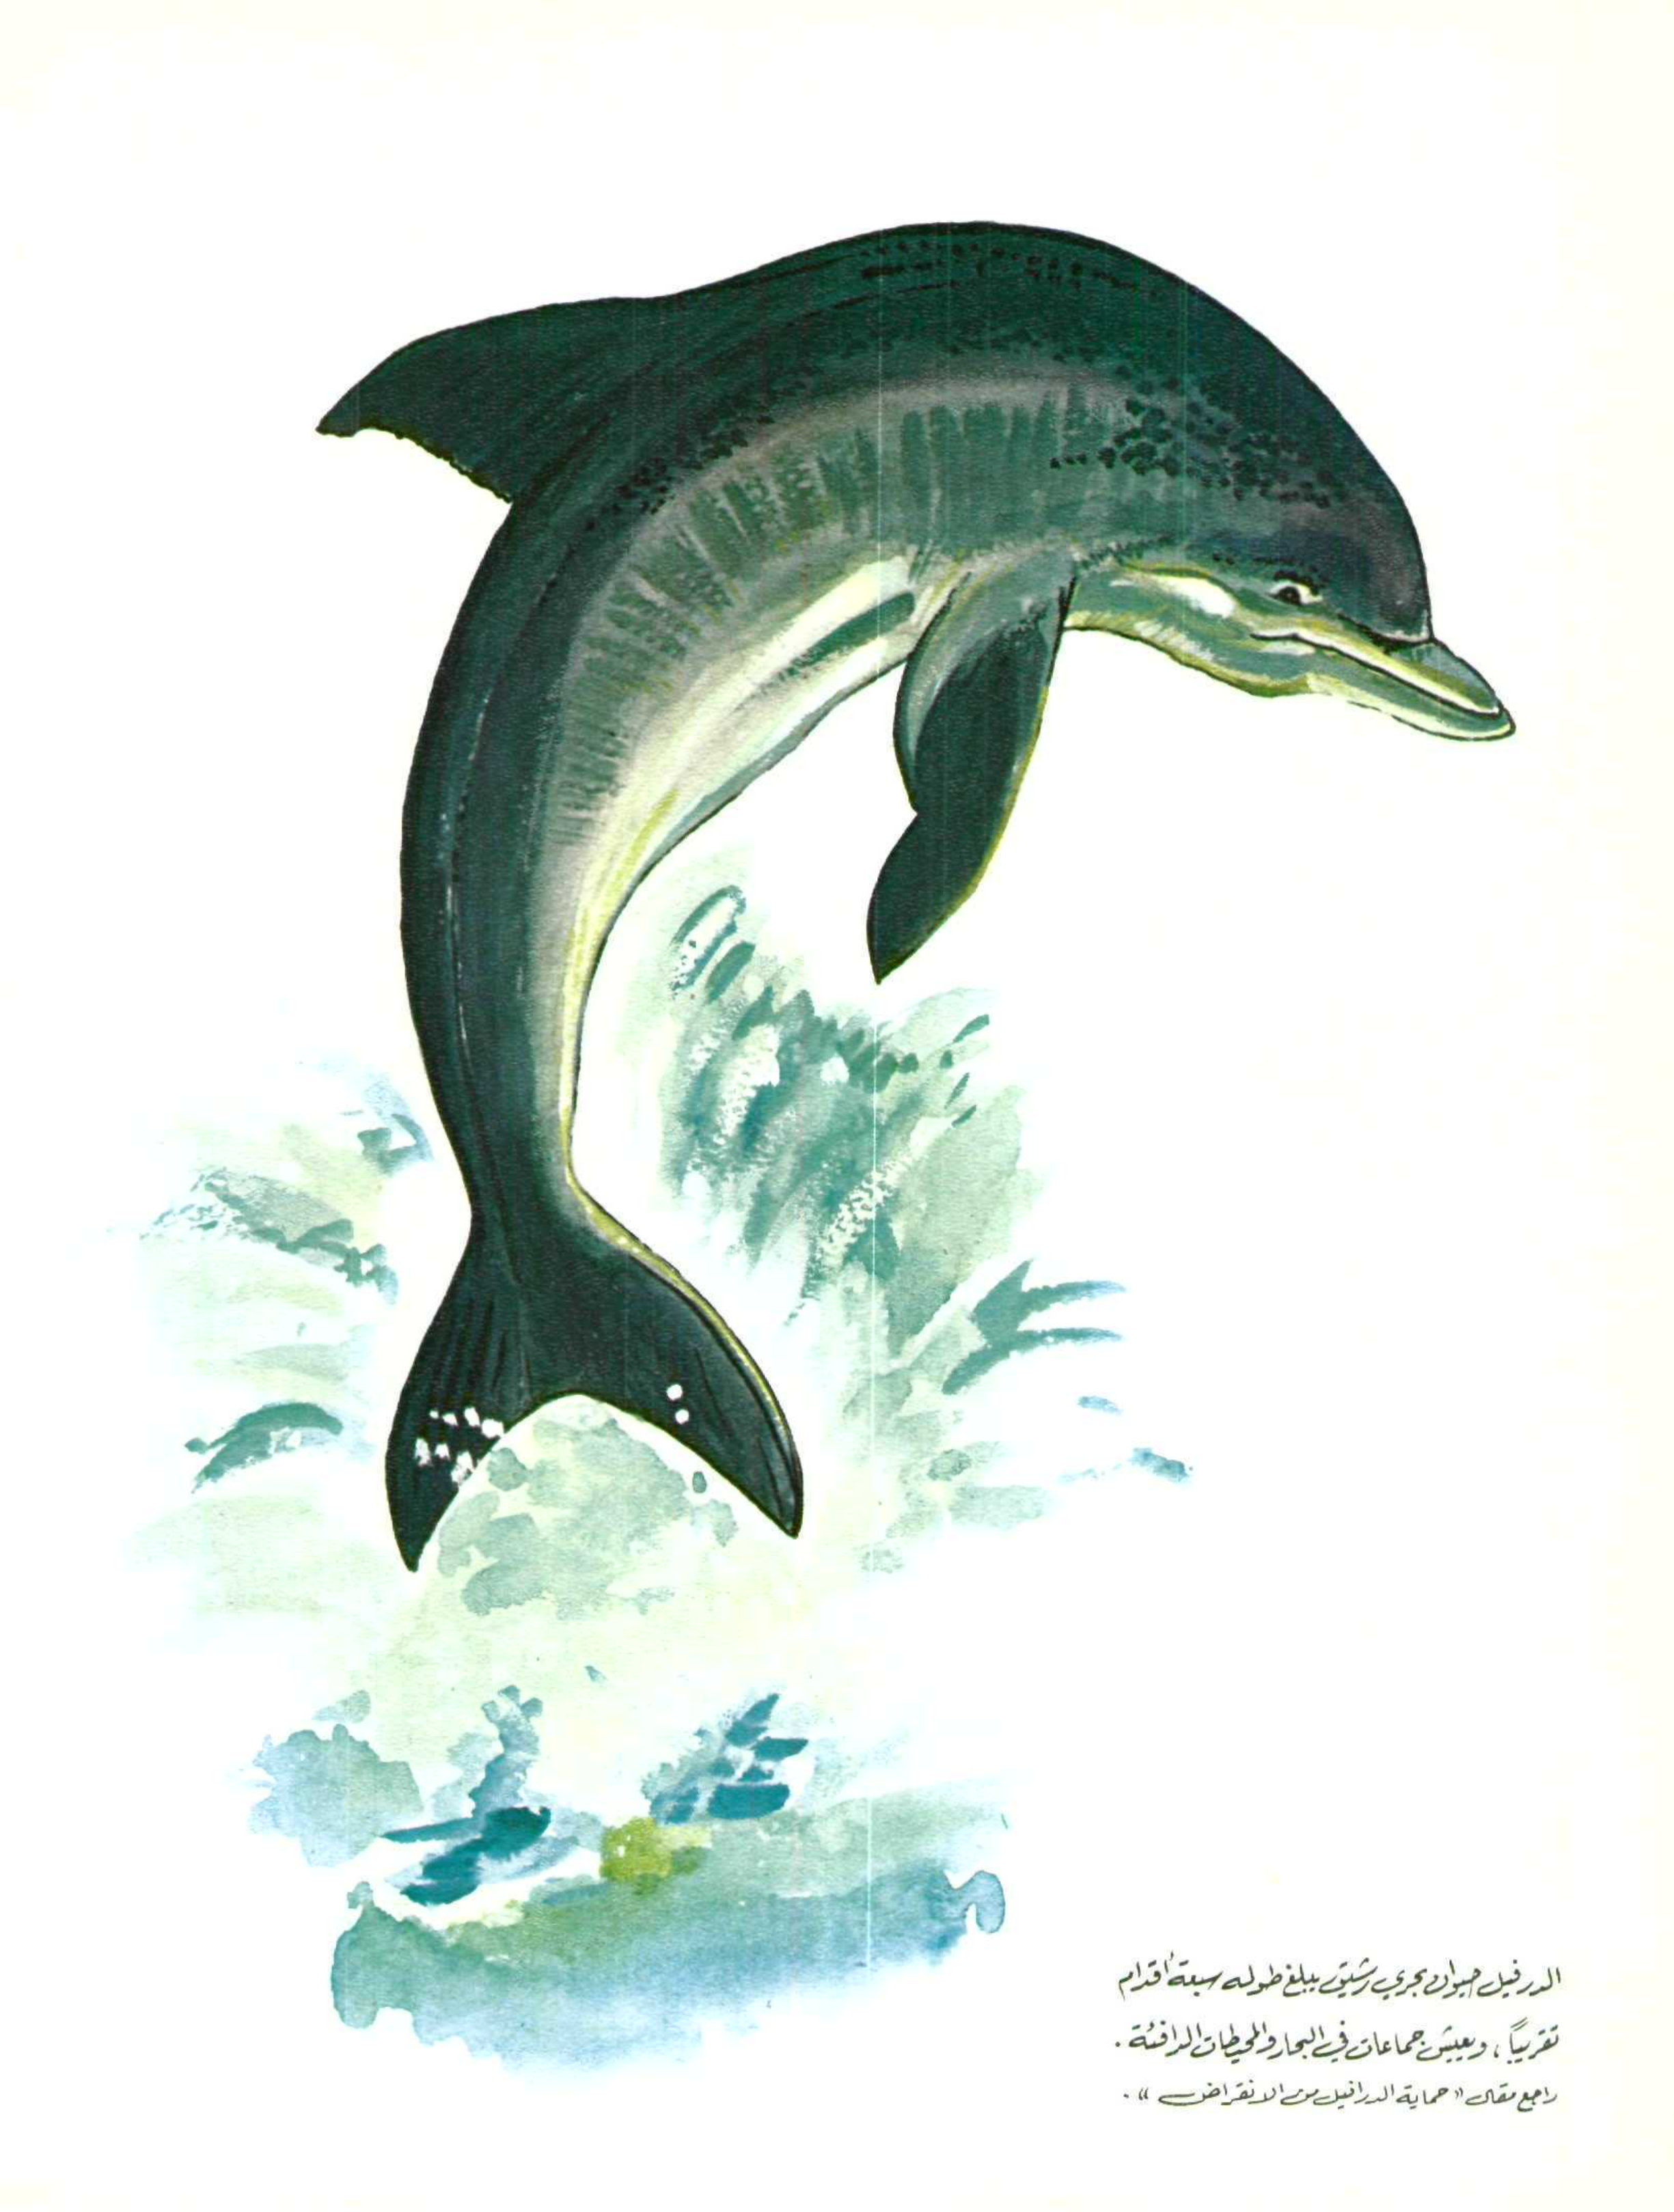 الدرفيل حيوان بحري رشيق يبلغ طوله سبعة أقدام
تقريباً ، ويعيش جماعات في البحار والمحيطات الدافئة .
راجع مقال « حماية الدرافيل من الانقراض » .